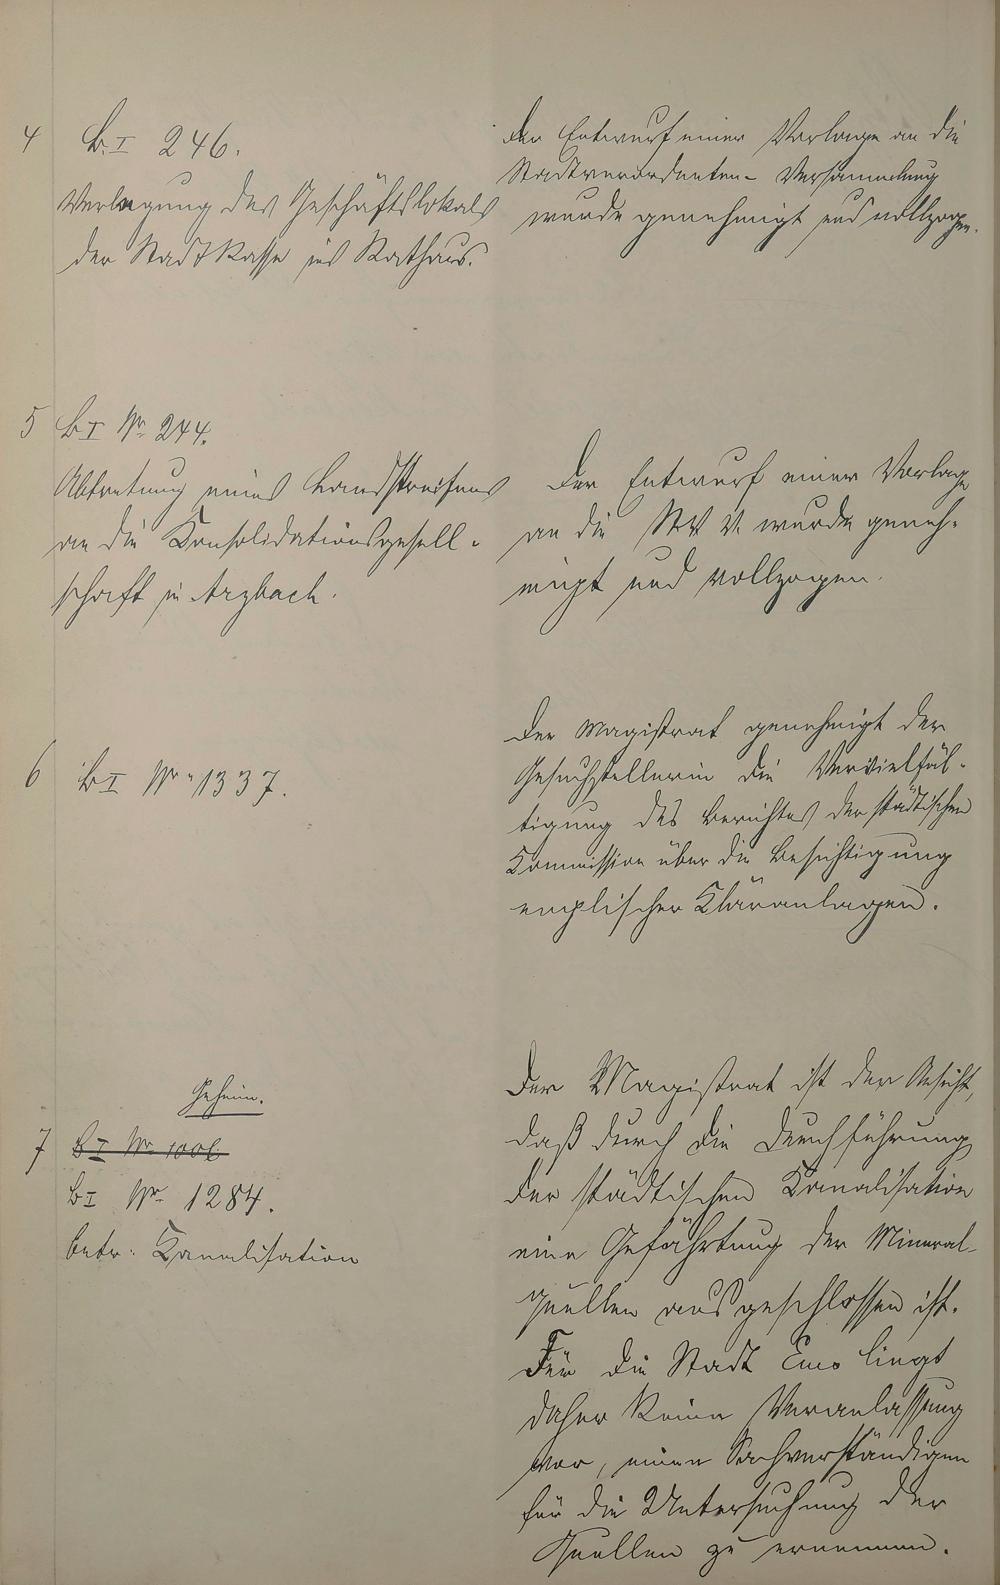 4
B.I 246.
Verlegung des Geschäftslokals
der Stadtkasse ins Rathaus.
Der Entwurf einer Vorlage an die
Stadtverordneten-Versammlung
wurde genehmigt und vollzogen.
5
B I Nr. 244.
Abtretung eines Landstreifens
an die Konsolidationsgesell-
schaft in Arzbach.
Der Entwurf einer Vorlage
an die St. V. V. wurde geneh-
migt und vollzogen.
6
B I Nr. 1337.
Der Magistrat genehmigt der
Gesuchstellerin die Vervielfäl-
tigung des Berichtes der städtischen
Kommission über die Besichtigung
englischer Kläranlagen.
Geheim.
7
B I Nr. 1006
B I Nr. 1284.
betr: Kanalisation
Der Magistrat ist der Ansicht,
daß durch die Durchführung
der städtischen Kanalisation
eine Gefährtung der Mineral-
quellen ausgeschlossen ist.
Für die Stadt Ems liegt
daher keine Veranlassung
vor, einen Sachverständigen
für die Untersuchung der
Quellen zu ernennen.